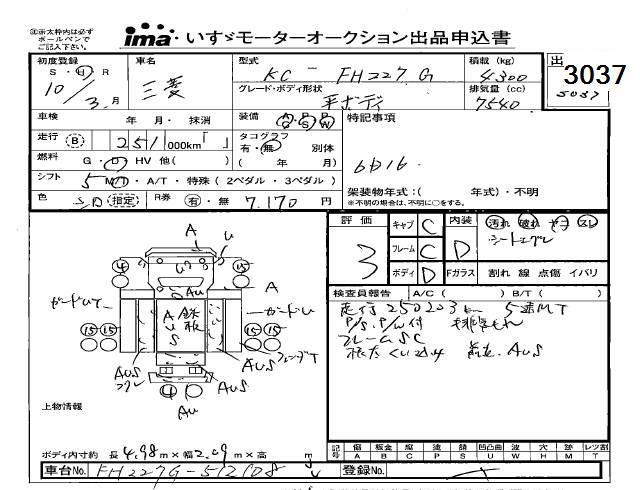 ※太枠内は必ず
ボールペンで
ご記入下さい。
ima いすゞモーターオークション出品申込書
初度登録 車名 型式 積載(kg) 出
S・H・R 三菱 KC-FH227G 4,300 3037
10/3月 グレード・ボディ形状 排気量(cc) 5037
平ボディ 7540
車検 年 月・ 抹消 装備 AC・PS・PW 特記事項
走行 B 251,000km「 」 タコグラフ
有・無 別体
燃料 G・D・HV 他( ) ( 年 月) 6D16.
シフト 5 MT・A/T・特殊(2ペダル・3ペダル) 架装物年式:( 年式)・不明
※不明の場合は、不明に○をする。
色 (指定) R券 有・無 7,170 円
評価 キャブ C 内装 汚れ 破れ ヤコ スレ
3 フレーム C D
ボディ D Fガラス 割れ 線 点傷 イバリ
検査員報告 A/C( ) B/T( )
走行 250223km 5速MT
P/S. P/W付
フレームSC
AUS
A U
4 15
U U
AU A
ガードUT ガードU
15 15 AUS 鉄板 15 15
フェンダT
AUS AUS
4
AU
上物情報
ボディ内寸約 長 4.98m×幅 2.09m×高 m
記号 傷 板金 腐 塗 錆 凹凸曲 波 穴 跡 レツ割
A B C P S U W H M T
車台No. FH227G-512108 登録No.